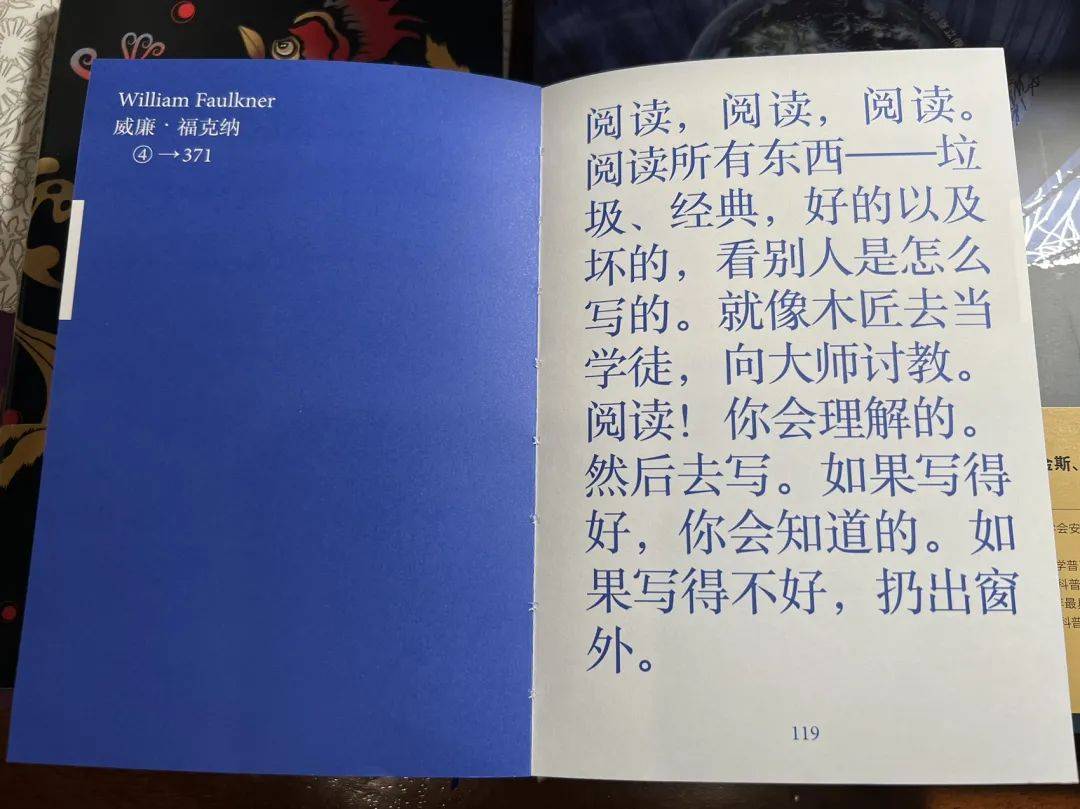 William Faulkner
威廉·福克纳
④→371
阅读，阅读，阅读。
阅读所有东西——垃
圾、经典，好的以及
坏的，看别人是怎么
写的。就像木匠去当
学徒，向大师讨教。
阅读！你会理解的。
然后去写。如果写得
好，你会知道的。如
果写得不好，扔出窗
外。
119
金斯、
学普
科普
科普